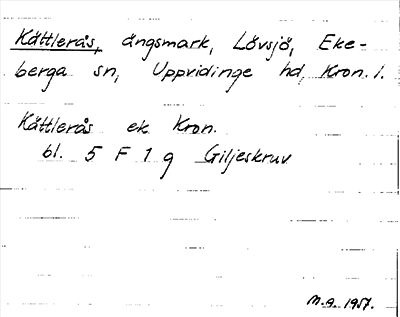 Kättlerås, ängsmark, Lövsjö, Eke-
berga sn, Uppvidinge hd, Kron. l.
Kättlerås ek. Kron.
bl. 5 F 1 g Giljeskruv
M.A. 1957.